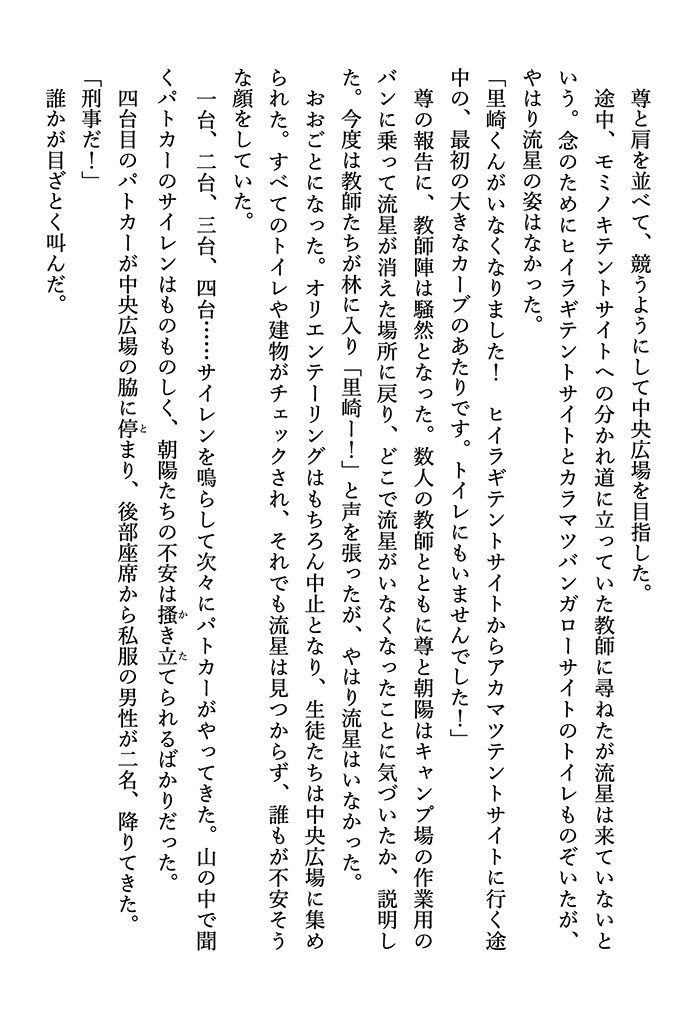 尊と肩を並べて、競うようにして中央広場を目指した。
　途中、モミノキテントサイトへの分かれ道に立っていた教師に尋ねたが流星は来ていないと
いう。念のためにヒイラギテントサイトとカラマツバンガローサイトのトイレものぞいたが、
やはり流星の姿はなかった。
「里崎くんがいなくなりました！　ヒイラギテントサイトからアカマツテントサイトに行く途
中の、最初の大きなカーブのあたりです。トイレにもいませんでした！」
　尊の報告に、教師陣は騒然となった。数人の教師とともに尊と朝陽はキャンプ場の作業用の
バンに乗って流星が消えた場所に戻り、どこで流星がいなくなったことに気づいたか、説明し
た。今度は教師たちが林に入り「里崎ー！」と声を張ったが、やはり流星はいなかった。
　おおごとになった。オリエンテーリングはもちろん中止となり、生徒たちは中央広場に集め
られた。すべてのトイレや建物がチェックされ、それでも流星は見つからず、誰もが不安そう
な顔をしていた。
　一台、二台、三台、四台……サイレンを鳴らして次々にパトカーがやってきた。山の中で聞
くパトカーのサイレンはものものしく、朝陽たちの不安は掻き立てられるばかりだった。
　四台目のパトカーが中央広場の脇に停まり、後部座席から私服の男性が二名、降りてきた。
「刑事だ！」
　誰かが目ざとく叫んだ。